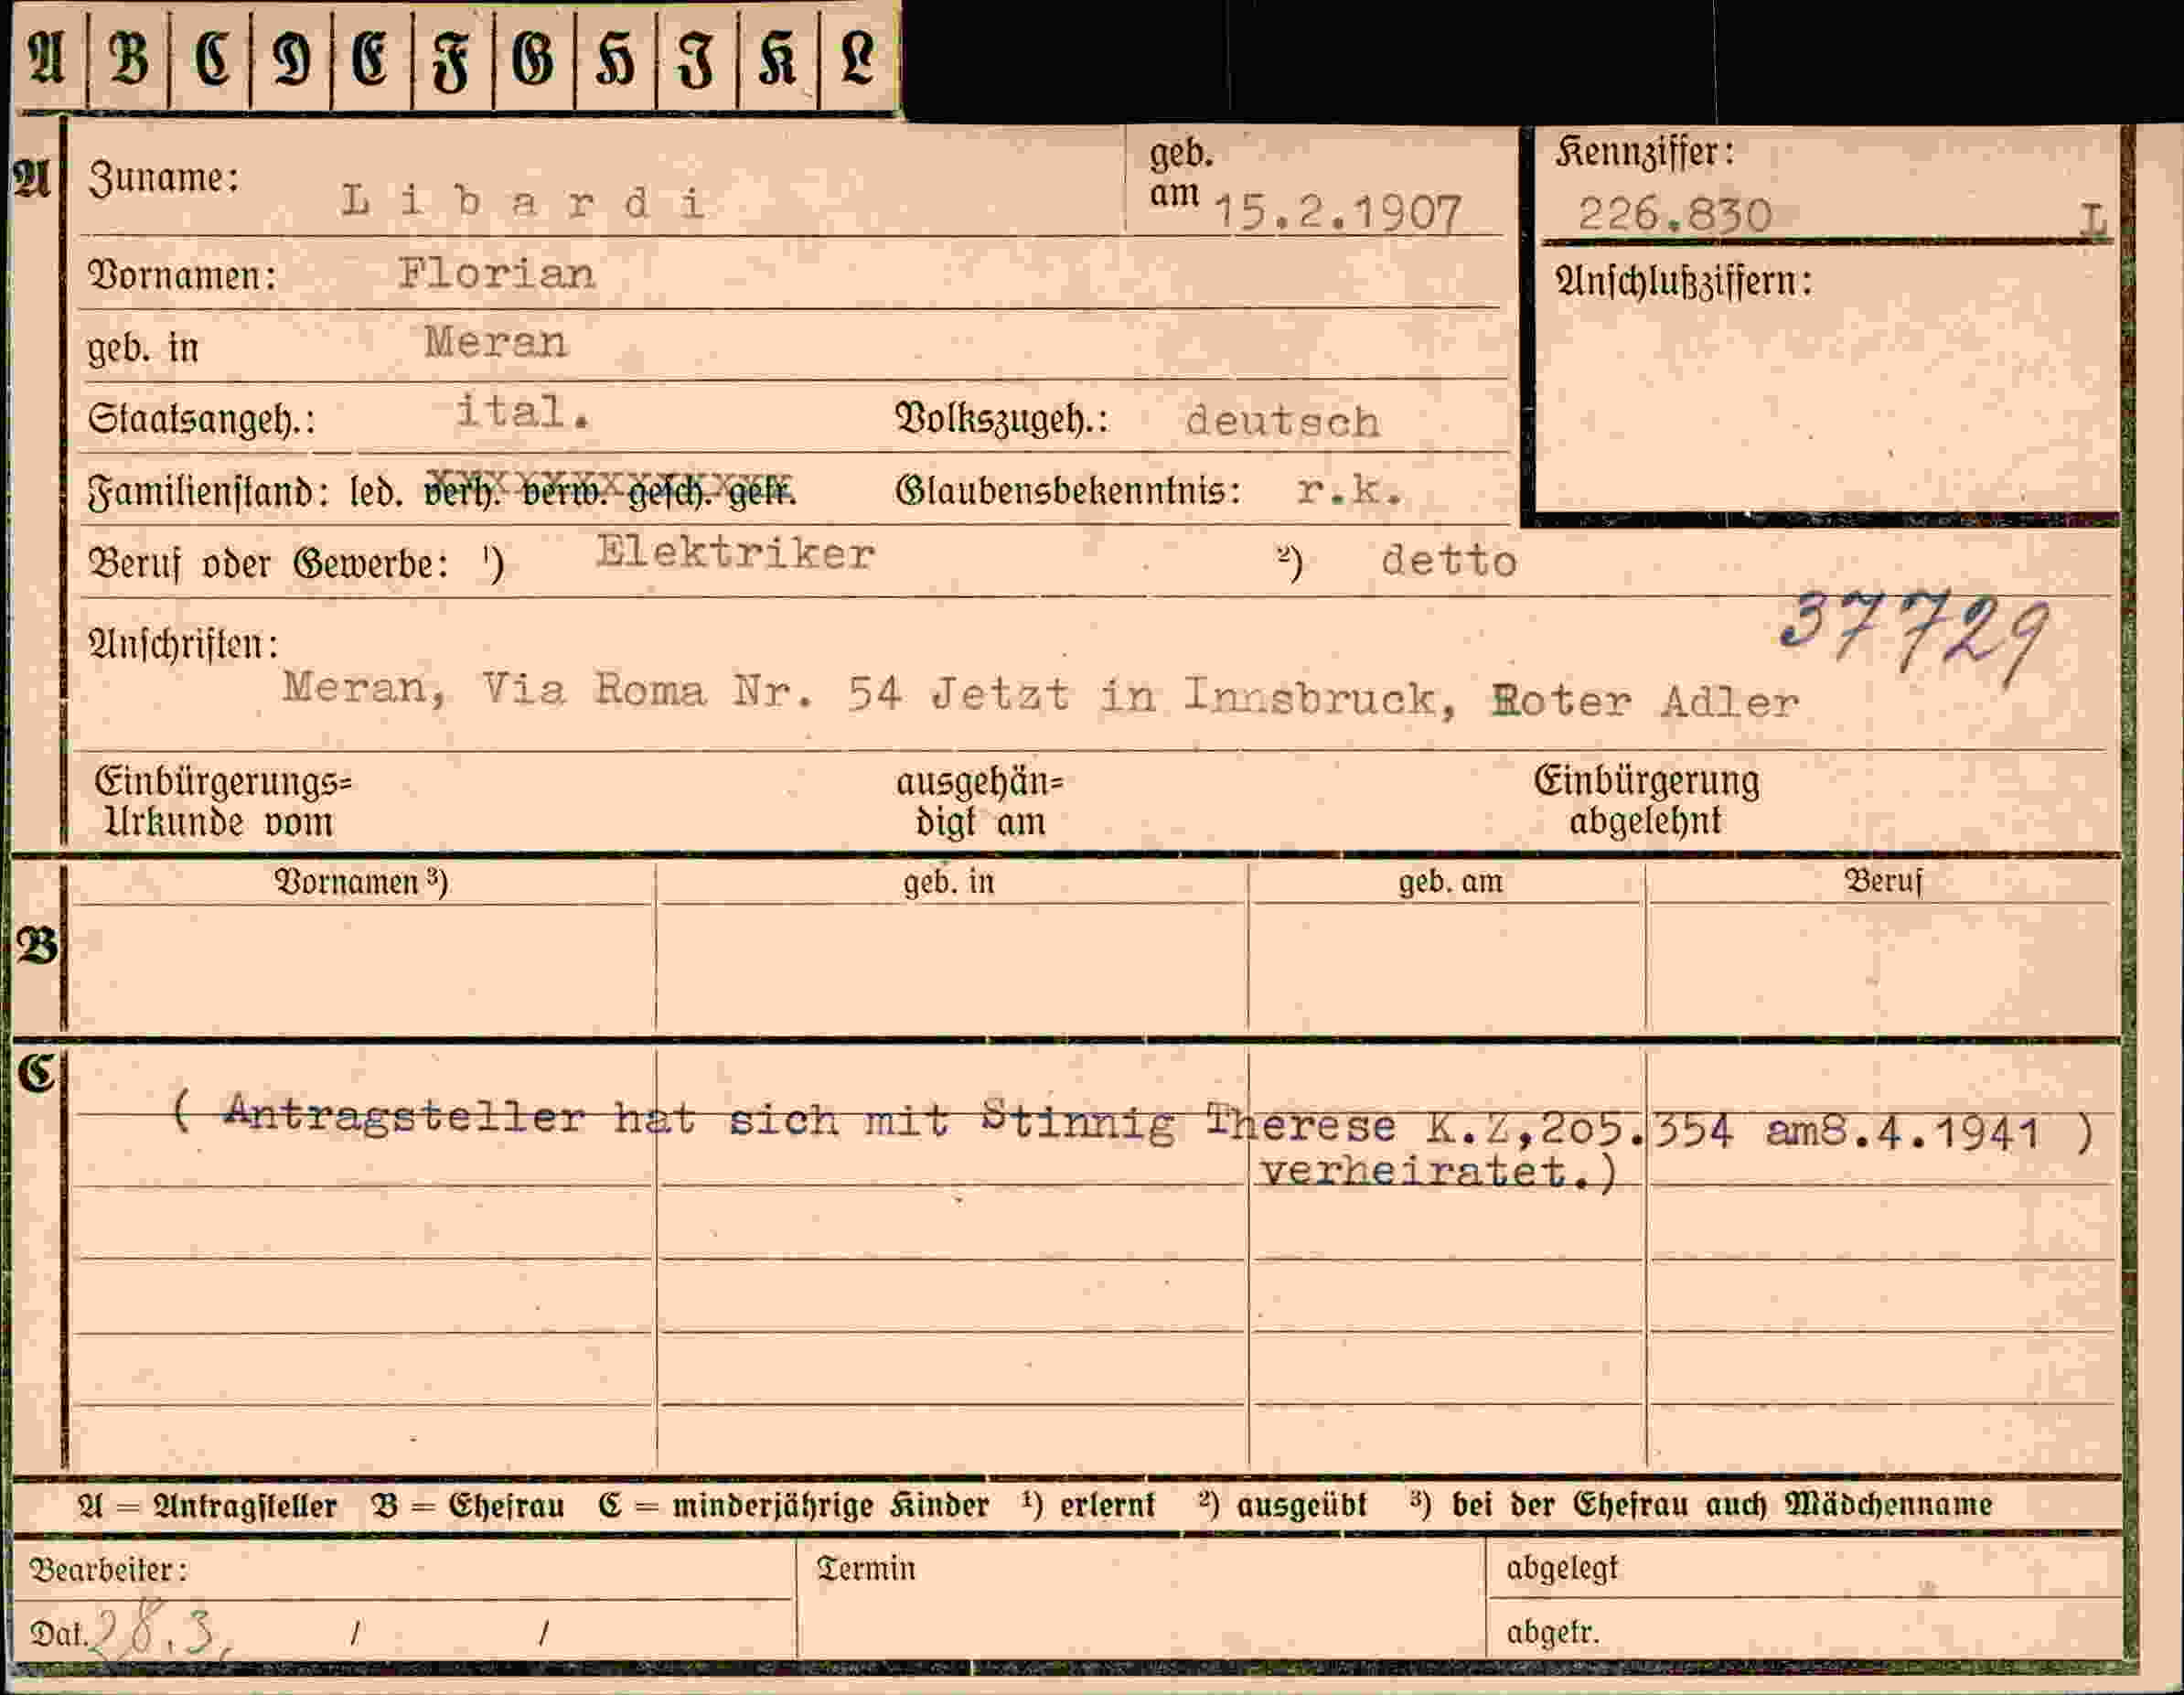 A B C D E F G H I K L
A Zuname: Libardi geb. am 15.2.1907 Kennziffer: 226.830 L
Vornamen: Florian Anschlußziffern:
geb. in Meran
Staatsangeh.: ital. Volkszugeh.: deutsch
Familienstand: led. verh. verw. gesch. getr. Glaubensbekenntnis: r.k.
Beruf oder Gewerbe: ¹) Elektriker ²) detto
37729
Anschriften:
Meran, Via Roma Nr. 54 Jetzt in Innsbruck, Roter Adler
Einbürgerungs= ausgehän= Einbürgerung
Urkunde vom digt am abgelehnt
Vornamen ³) geb. in geb. am Beruf
B
C
( Antragsteller hat sich mit Stinnig Therese K.Z,2o5.354 am8.4.1941 )
verheiratet.)
A = Antragsteller B = Ehefrau C = minderjährige Kinder ¹) erlernt ²) ausgeübt ³) bei der Ehefrau auch Mädchenname
Bearbeiter: Termin abgelegt
Dat. 28.3. / / abgetr.